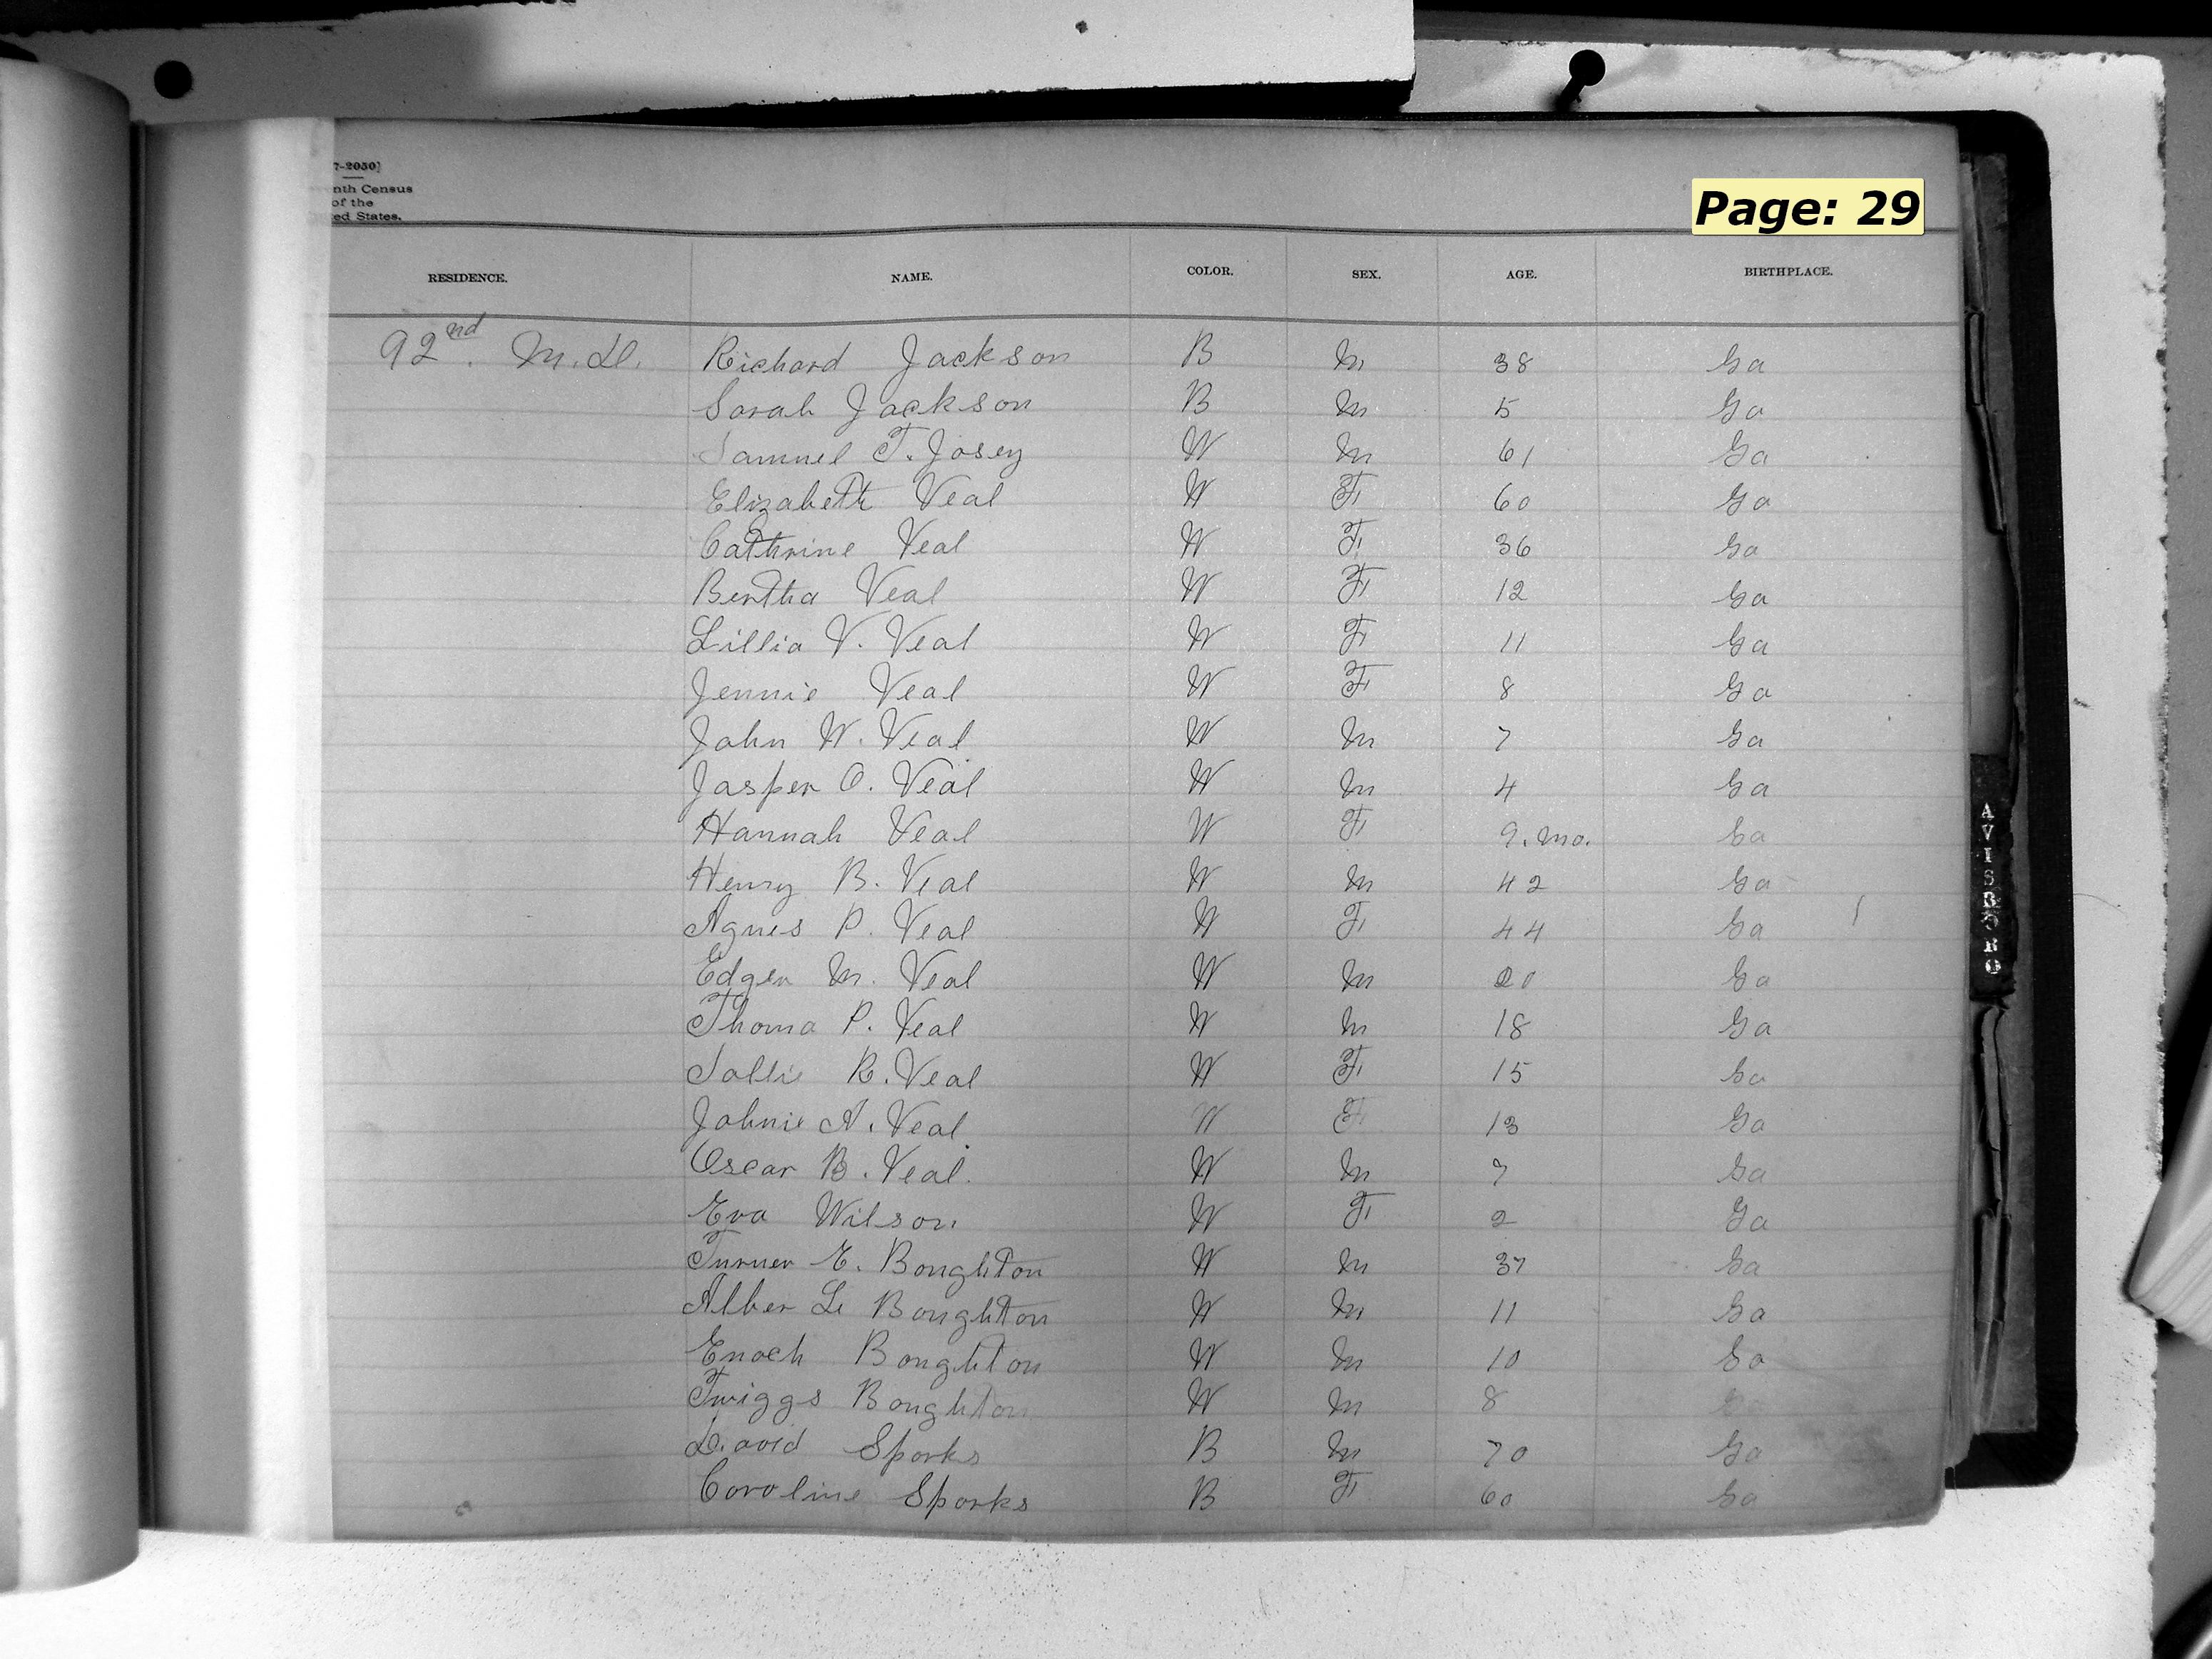 7-2050]
nth Census
of the
ed States.
Page: 29
RESIDENCE. NAME. COLOR. SEX. AGE. BIRTHPLACE.
92nd. M.D. Richard Jackson B M 38 Ga
Sarah Jackson B M 5 Ga
Samuel T. Josey W M 61 Ga
Elizabeth Veal W F 60 Ga
Cathrine Veal W F 36 Ga
Bertha Veal W F 12 Ga
Lillia V. Veal W F 11 Ga
Jennie Veal W F 8 Ga
John W. Veal W M 7 Ga
Jasper O. Veal W M 4 Ga
Hannah Veal W F 9. mo. Ga
Henry B. Veal W M 42 Ga
Agnes P. Veal W F 44 Ga
Edger M. Veal W M 20 Ga
Thoma P. Veal W M 18 Ga
Sallie R. Veal W F 15 Ga
Johnie A. Veal W F 13 Ga
Oscar B. Veal. W M 7 Ga
Eva Wilson. W F 2 Ga
Turner E. Boughton W M 37 Ga
Alber L. Boughton W M 11 Ga
Enoch Boughton W M 10 Ga
Twiggs Boughton W M 8
David Sparks B M 70 Ga
Caroline Sparks B F 60 Ga
AVISBORO